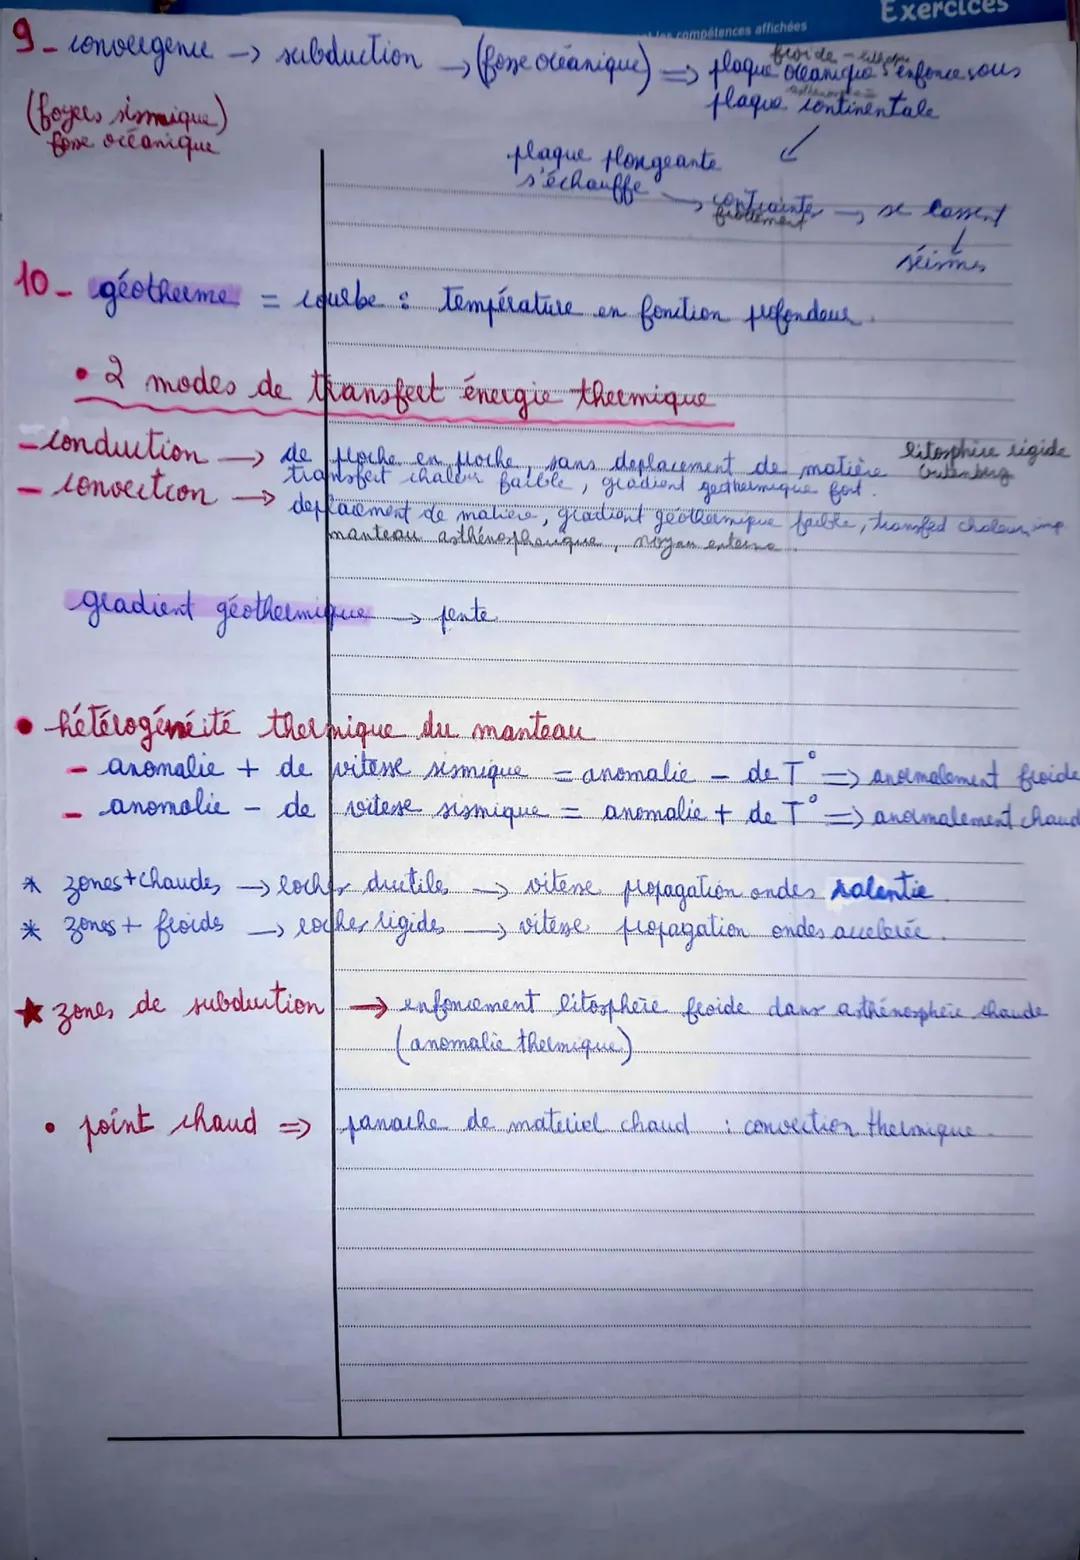 Exercices
compétences affichées
9- convergence → subduction → (fosse océanique) ⇒ plaque océanique s'enfonce sous
froide
plaque continentale
(foyers sismique)
fosse océanique
plaque plongeante
s'échauffe → contrainte → se cassent
frottement
↓
séismes
10- géotherme = courbe : température en fonction profondeur.
• 2 modes de transfert énergie thermique
- conduction → de proche en proche, sans deplacement de matière litosphère rigide
transfert chaleur faible, gradient geothermique fort. Gutenberg
- convection → deplacement de matière, gradient géothermique faible, transfert chaleur imp
manteau asthénosphérique, noyau externe
gradient géothermique → pente
• hétérogénéité thermique du manteau
- anomalie + de vitesse sismique = anomalie - de T° ⇒ anormalement froide
- anomalie - de vitesse sismique = anomalie + de T° ⇒ anormalement chaud
* zones + chaudes → roches ductiles → vitesse propagation ondes ralentie
* zones + froids → roches rigides → vitesse propagation ondes accelerée.
★ zones de subduction → enfoncement litosphère froide dans asthénosphère chaude
(anomalie thermique)
• point chaud ⇒ panache de materiel chaud : convection thermique.